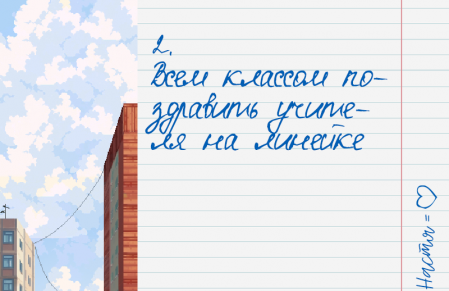 2.
Всем классом по-
здравить учите-
ля на линейке
Настя = ♡